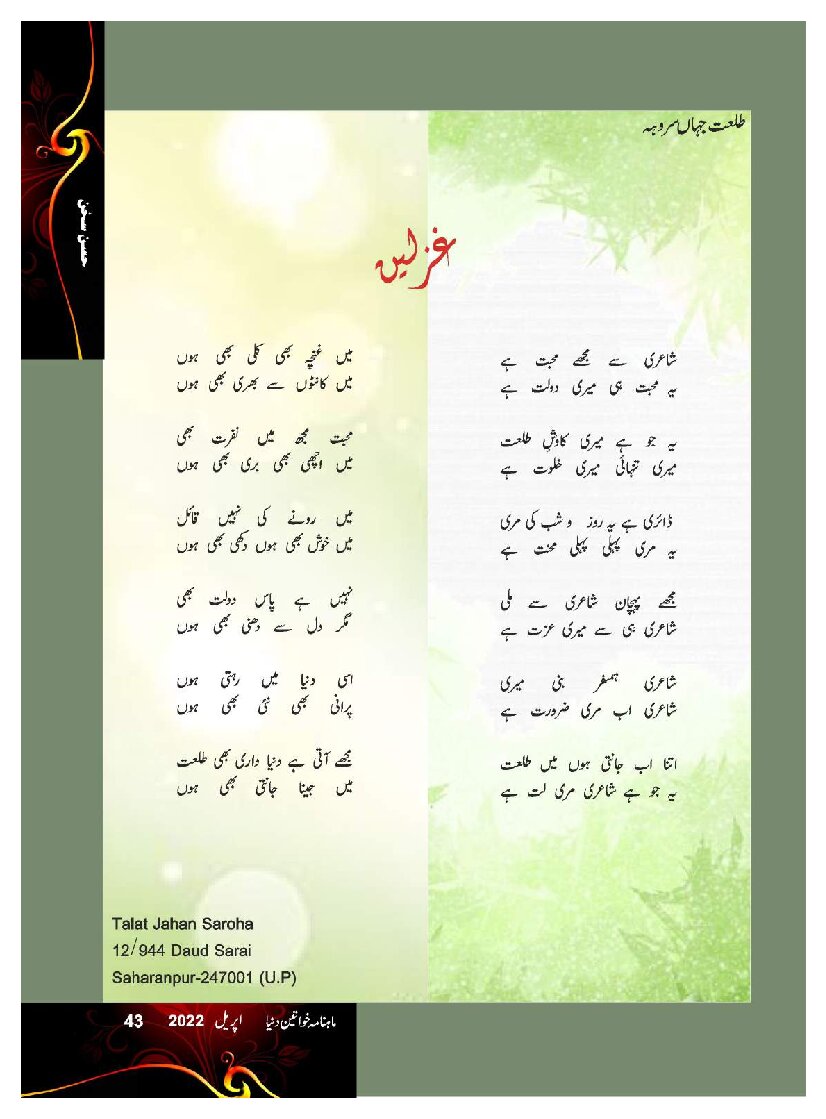 طلعت جہاں سروہہ
حسن سخن
غزلیں
شاعری سے مجھے محبت ہے
یہ محبت ہی میری دولت ہے
یہ جو ہے میری کاوشِ طلعت
میری تنہائی میری خلوت ہے
ڈائری ہے یہ روز و شب کی مری
یہ مری پہلی پہلی محنت ہے
مجھے پہچان شاعری سے ملی
شاعری ہی سے میری عزت ہے
شاعری ہمسفر بنی میری
شاعری اب مری ضرورت ہے
اتنا اب جانتی ہوں میں طلعت
یہ جو ہے شاعری مری لت ہے
میں غنچہ بھی کلی بھی ہوں
میں کانٹوں سے بھری بھی ہوں
محبت مجھ میں نفرت بھی
میں اچھی بھی بری بھی ہوں
میں رونے کی نہیں قائل
میں خوش بھی ہوں دکھی بھی ہوں
نہیں ہے پاس دولت بھی
مگر دل سے دھنی بھی ہوں
اسی دنیا میں رہتی ہوں
پرانی بھی نئی بھی ہوں
مجھے آتی ہے دنیا داری بھی طلعت
میں جینا جانتی بھی ہوں
Talat Jahan Saroha
12/944 Daud Sarai
Saharanpur-247001 (U.P)
ماہنامہ خواتین دنیا اپریل 2022 43